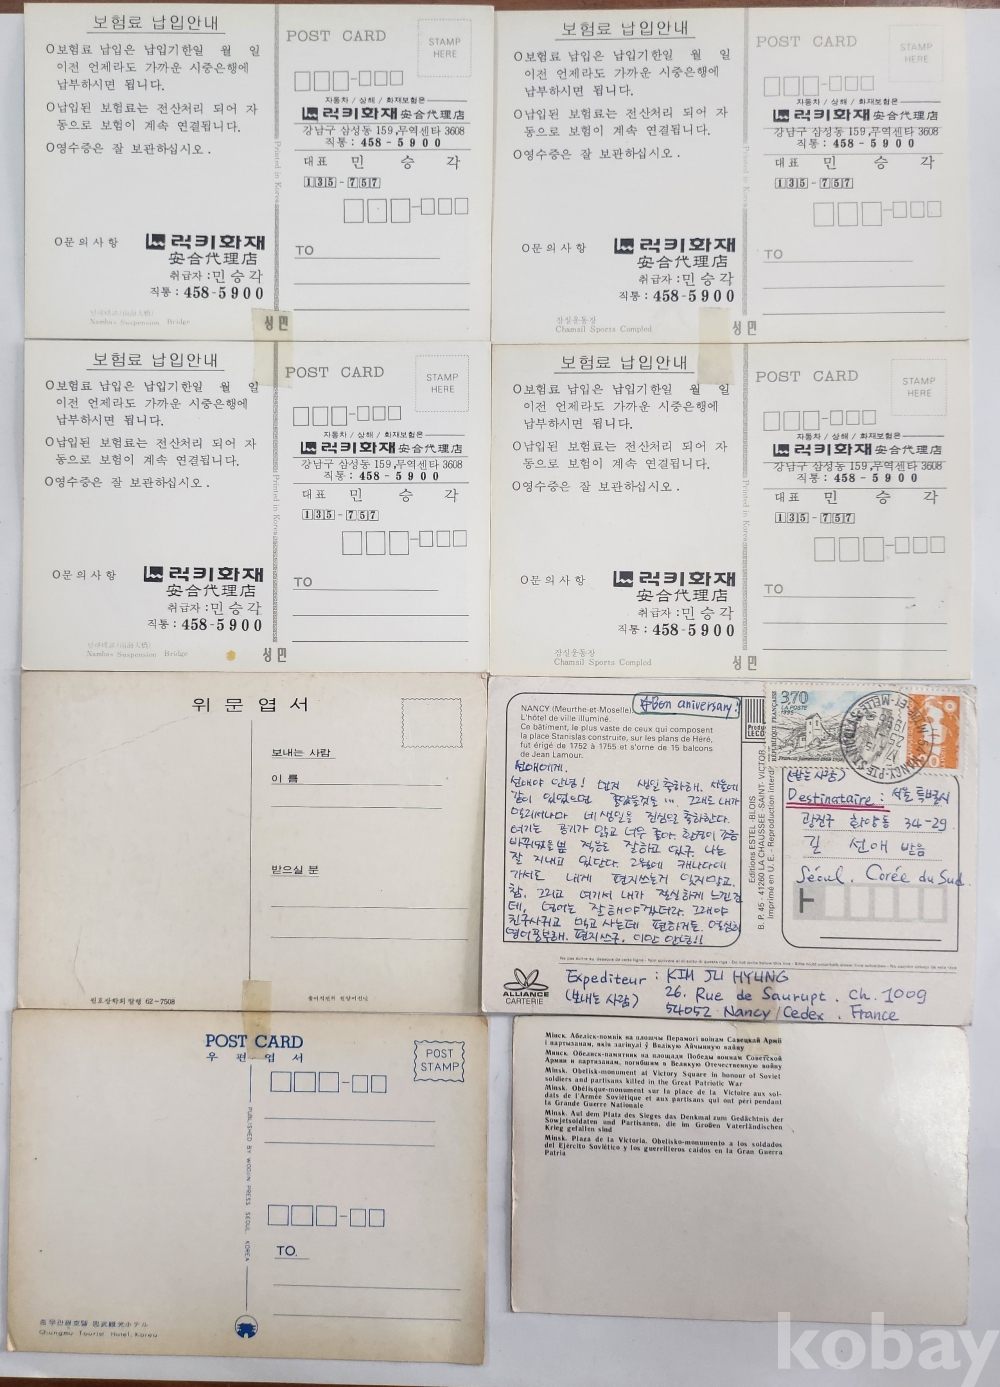 보험료 납입안내
O보험료 납입은 납입기한일 월 일
이전 언제라도 가까운 시중은행에
납부하시면 됩니다.
O납입된 보험료는 전산처리 되어 자
동으로 보험이 계속 연결됩니다.
O영수증은 잘 보관하십시오.
O문의사항
럭키화재
安合代理店
취급자:민승각
직통: 458-5900
Nambae Suspension Bridge
POST CARD
STAMP
HERE
자동차 / 상해 / 화재보험은
럭키화재 安合代理店
강남구 삼성동 159,무역센타 3608
직통: 458-5900
대표 민 승 각
135-757
TO
Printed in Korea
성민
보험료 납입안내
O보험료 납입은 납입기한일 월 일
이전 언제라도 가까운 시중은행에
납부하시면 됩니다.
O납입된 보험료는 전산처리 되어 자
동으로 보험이 계속 연결됩니다.
O영수증은 잘 보관하십시오.
O문의사항
럭키화재
安合代理店
취급자:민승각
직통: 458-5900
잠실운동장
Chamsil Sports Compled
POST CARD
STAMP
HERE
자동차 / 상해 / 화재보험은
럭키화재 安合代理店
강남구 삼성동 159,무역센타 3608
직통: 458-5900
대표 민 승 각
135-757
TO
Printed in Korea
성민
보험료 납입안내
O보험료 납입은 납입기한일 월 일
이전 언제라도 가까운 시중은행에
납부하시면 됩니다.
O납입된 보험료는 전산처리 되어 자
동으로 보험이 계속 연결됩니다.
O영수증은 잘 보관하십시오.
O문의사항
럭키화재
安合代理店
취급자:민승각
직통: 458-5900
Nambae Suspension Bridge
POST CARD
STAMP
HERE
자동차 / 상해 / 화재보험은
럭키화재 安合代理店
강남구 삼성동 159,무역센타 3608
직통: 458-5900
대표 민 승 각
135-757
TO
Printed in Korea
성민
보험료 납입안내
O보험료 납입은 납입기한일 월 일
이전 언제라도 가까운 시중은행에
납부하시면 됩니다.
O납입된 보험료는 전산처리 되어 자
동으로 보험이 계속 연결됩니다.
O영수증은 잘 보관하십시오.
O문의사항
럭키화재
安合代理店
취급자:민승각
직통: 458-5900
잠실운동장
Chamsil Sports Compled
POST CARD
STAMP
HERE
자동차 / 상해 / 화재보험은
럭키화재 安合代理店
강남구 삼성동 159,무역센타 3608
직통: 458-5900
대표 민 승 각
135-757
TO
Printed in Korea
성민
위문엽서
보내는 사람
이 름
받으실 분
원호장학회 발행 62-7508
NANCY (Meurthe-et-Moselle)
L'hôtel de ville illuminé.
Ce bâtiment, le plus vaste de ceux qui composent
la place Stanislas construite, sur les plans de Héré,
fut érigé de 1752 à 1755 et s'orne de 15 balcons
de Jean Lamour.
Bon aniversary!
선애에게.
선애야 안녕! 먼저 생일 축하해. 서울에
같이 있었으면 좋았을것을 ... 그래도 내가
멀리서나마 네 생일을 진심으로 축하한다.
여기는 공기가 맑고 너무 좋아. 환경이 조금
바뀌었을뿐 적응은 잘하고 있구. 나는
잘 지내고 있단다. 2월에 캐나다에
가서도 내게 편지쓰는거 잊지말고.
참, 그리고 여기서 내가 절실하게 느낀건
데, 영어는 잘해야겠더라. 그래야
친구사귀고 먹고 사는데 편하거든. 열심히
영어공부해. 편지쓰구. 이만 안녕!!
Editions ESTEL-BLOIS
B. P. 45 - 41260 LA CHAUSSEE-SAINT-VICTOR
Imprimé en U. E. - Reproduction interdite
3,70
LA POSTE
1995
RÉPUBLIQUE FRANÇAISE
(받는 사람)
Destinataire: 서울 특별시
광진구 화양동 34-29
길 선애 받음
Séoul. Corée du Sud
ALLIANCE
CARTERIE
Expediteur : KIM JU HYUNG
(보내는 사람) 26. Rue de Saurupt. ch. 1009
54052 Nancy Cedex. France
POST CARD
우편엽서
POST
STAMP
PUBLISHED BY WOOJIN PRESS SEOUL KOREA
TO.
Chungmu Tourist Hotel, Korea
Мінск. Абеліск-помнік на плошчы Перамогі воінам Савецкай Арміі
і партызанам, якія загінулі ў Вялікую Айчынную вайну
Минск. Обелиск-памятник на площади Победы воинам Советской
Армии и партизанам, погибшим в Великую Отечественную войну
Minsk. Obelisk-monument at Victory Square in honour of Soviet
soldiers and partisans killed in the Great Patriotic War
Minsk. Obélisque-monument sur la place de la Victoire aux sol-
dats de l'Armée Soviétique et aux partisans qui ont péri pendant
la Grande Guerre Nationale
Minsk. Auf dem Platz des Sieges das Denkmal zum Gedächtnis der
Sowjetsoldaten und Partisanen, die im Großen Vaterländischen
Krieg gefallen sind
Minsk. Plaza de la Victoria. Obelisko-monumento a los soldados
del Ejército Soviético y los guerrilleros caídos en la Gran Guerra
Patria
kobay